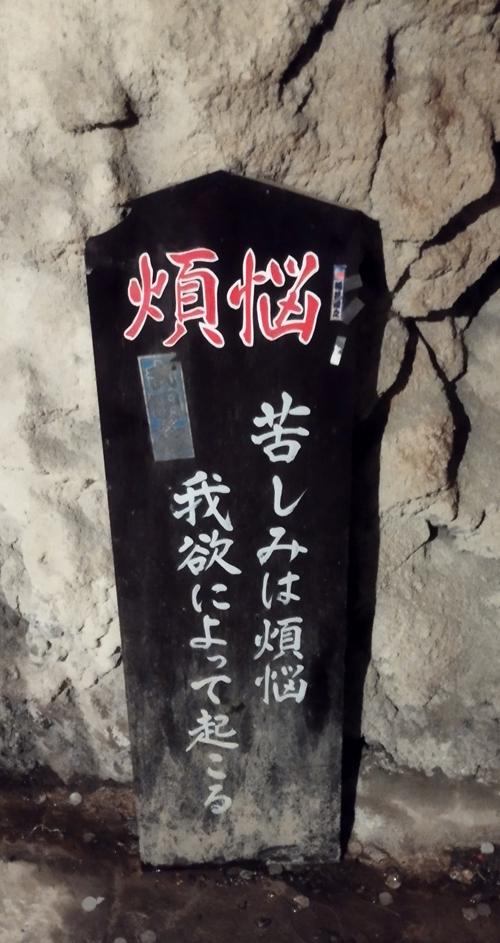 煩悩
苦しみは煩悩
我欲によって起こる